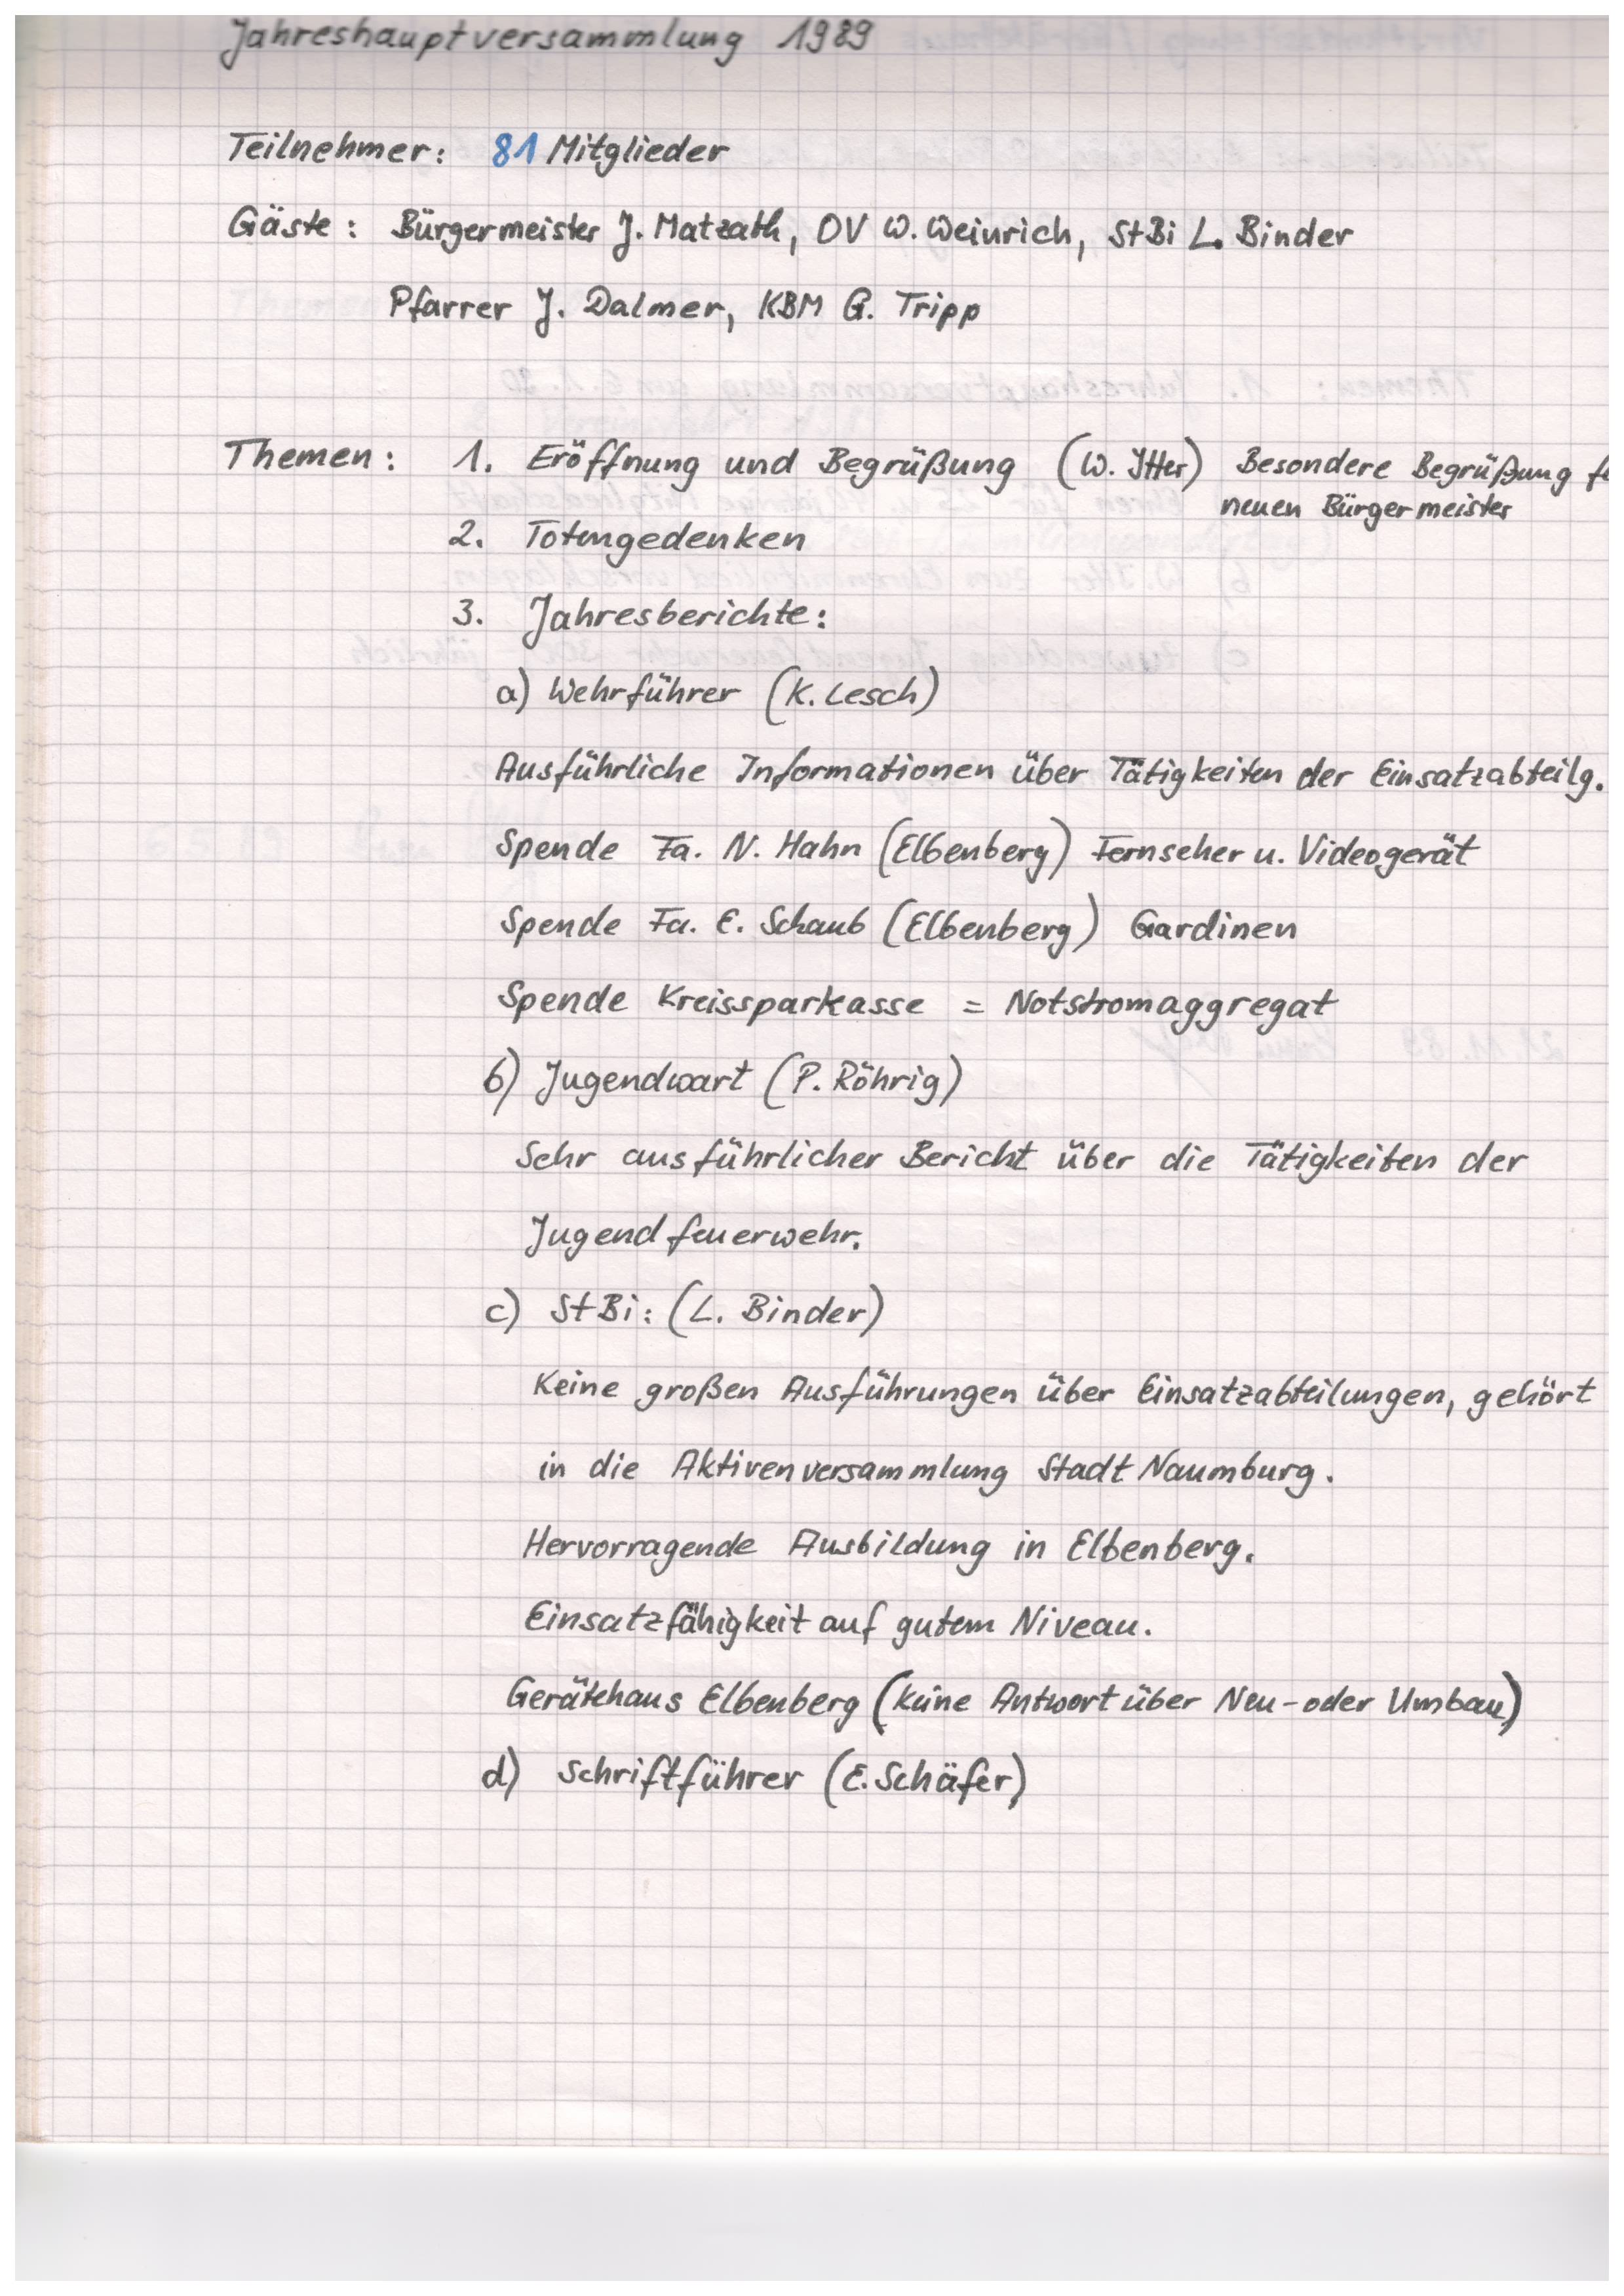 Jahreshauptversammlung 1989
Teilnehmer: 81 Mitglieder
Gäste: Bürgermeister J. Matzath, OV W. Weinrich, StBi L. Binder
Pfarrer J. Dalmer, KBM G. Tripp
Themen: 1. Eröffnung und Begrüßung (W. Itter) Besondere Begrüßung
neuen Bürgermeister
2. Totengedenken
3. Jahresberichte:
a) Wehrführer (K. Lesch)
Ausführliche Informationen über Tätigkeiten der Einsatzabteilg.
Spende Fa. N. Hahn (Elbenberg) Fernseher u. Videogerät
Spende Fa. E. Schaub (Elbenberg) Gardinen
Spende Kreissparkasse = Notstromaggregat
b) Jugendwart (P. Röhrig)
Sehr ausführlicher Bericht über die Tätigkeiten der
Jugendfeuerwehr.
c) StBi: (L. Binder)
Keine großen Ausführungen über Einsatzabteilungen, gehört
in die Aktivenversammlung Stadt Naumburg.
Hervorragende Ausbildung in Elbenberg.
Einsatzfähigkeit auf gutem Niveau.
Gerätehaus Elbenberg (keine Antwort über Neu- oder Umbau)
d) Schriftführer (E. Schäfer)